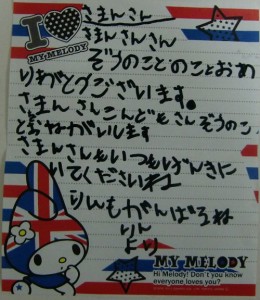 I
MY MELODY
さまんさん
さまんさんさん
ぞうのことのことおめ
りがとうございます。
さまんさんこんどもさんぞうのこ
とおねがいします
さまんさんもいつもげんきに
いてくださいね
りんもがんばるね
りん
より
MY MELODY
Hi Melody! Don't you know
everyone loves you?